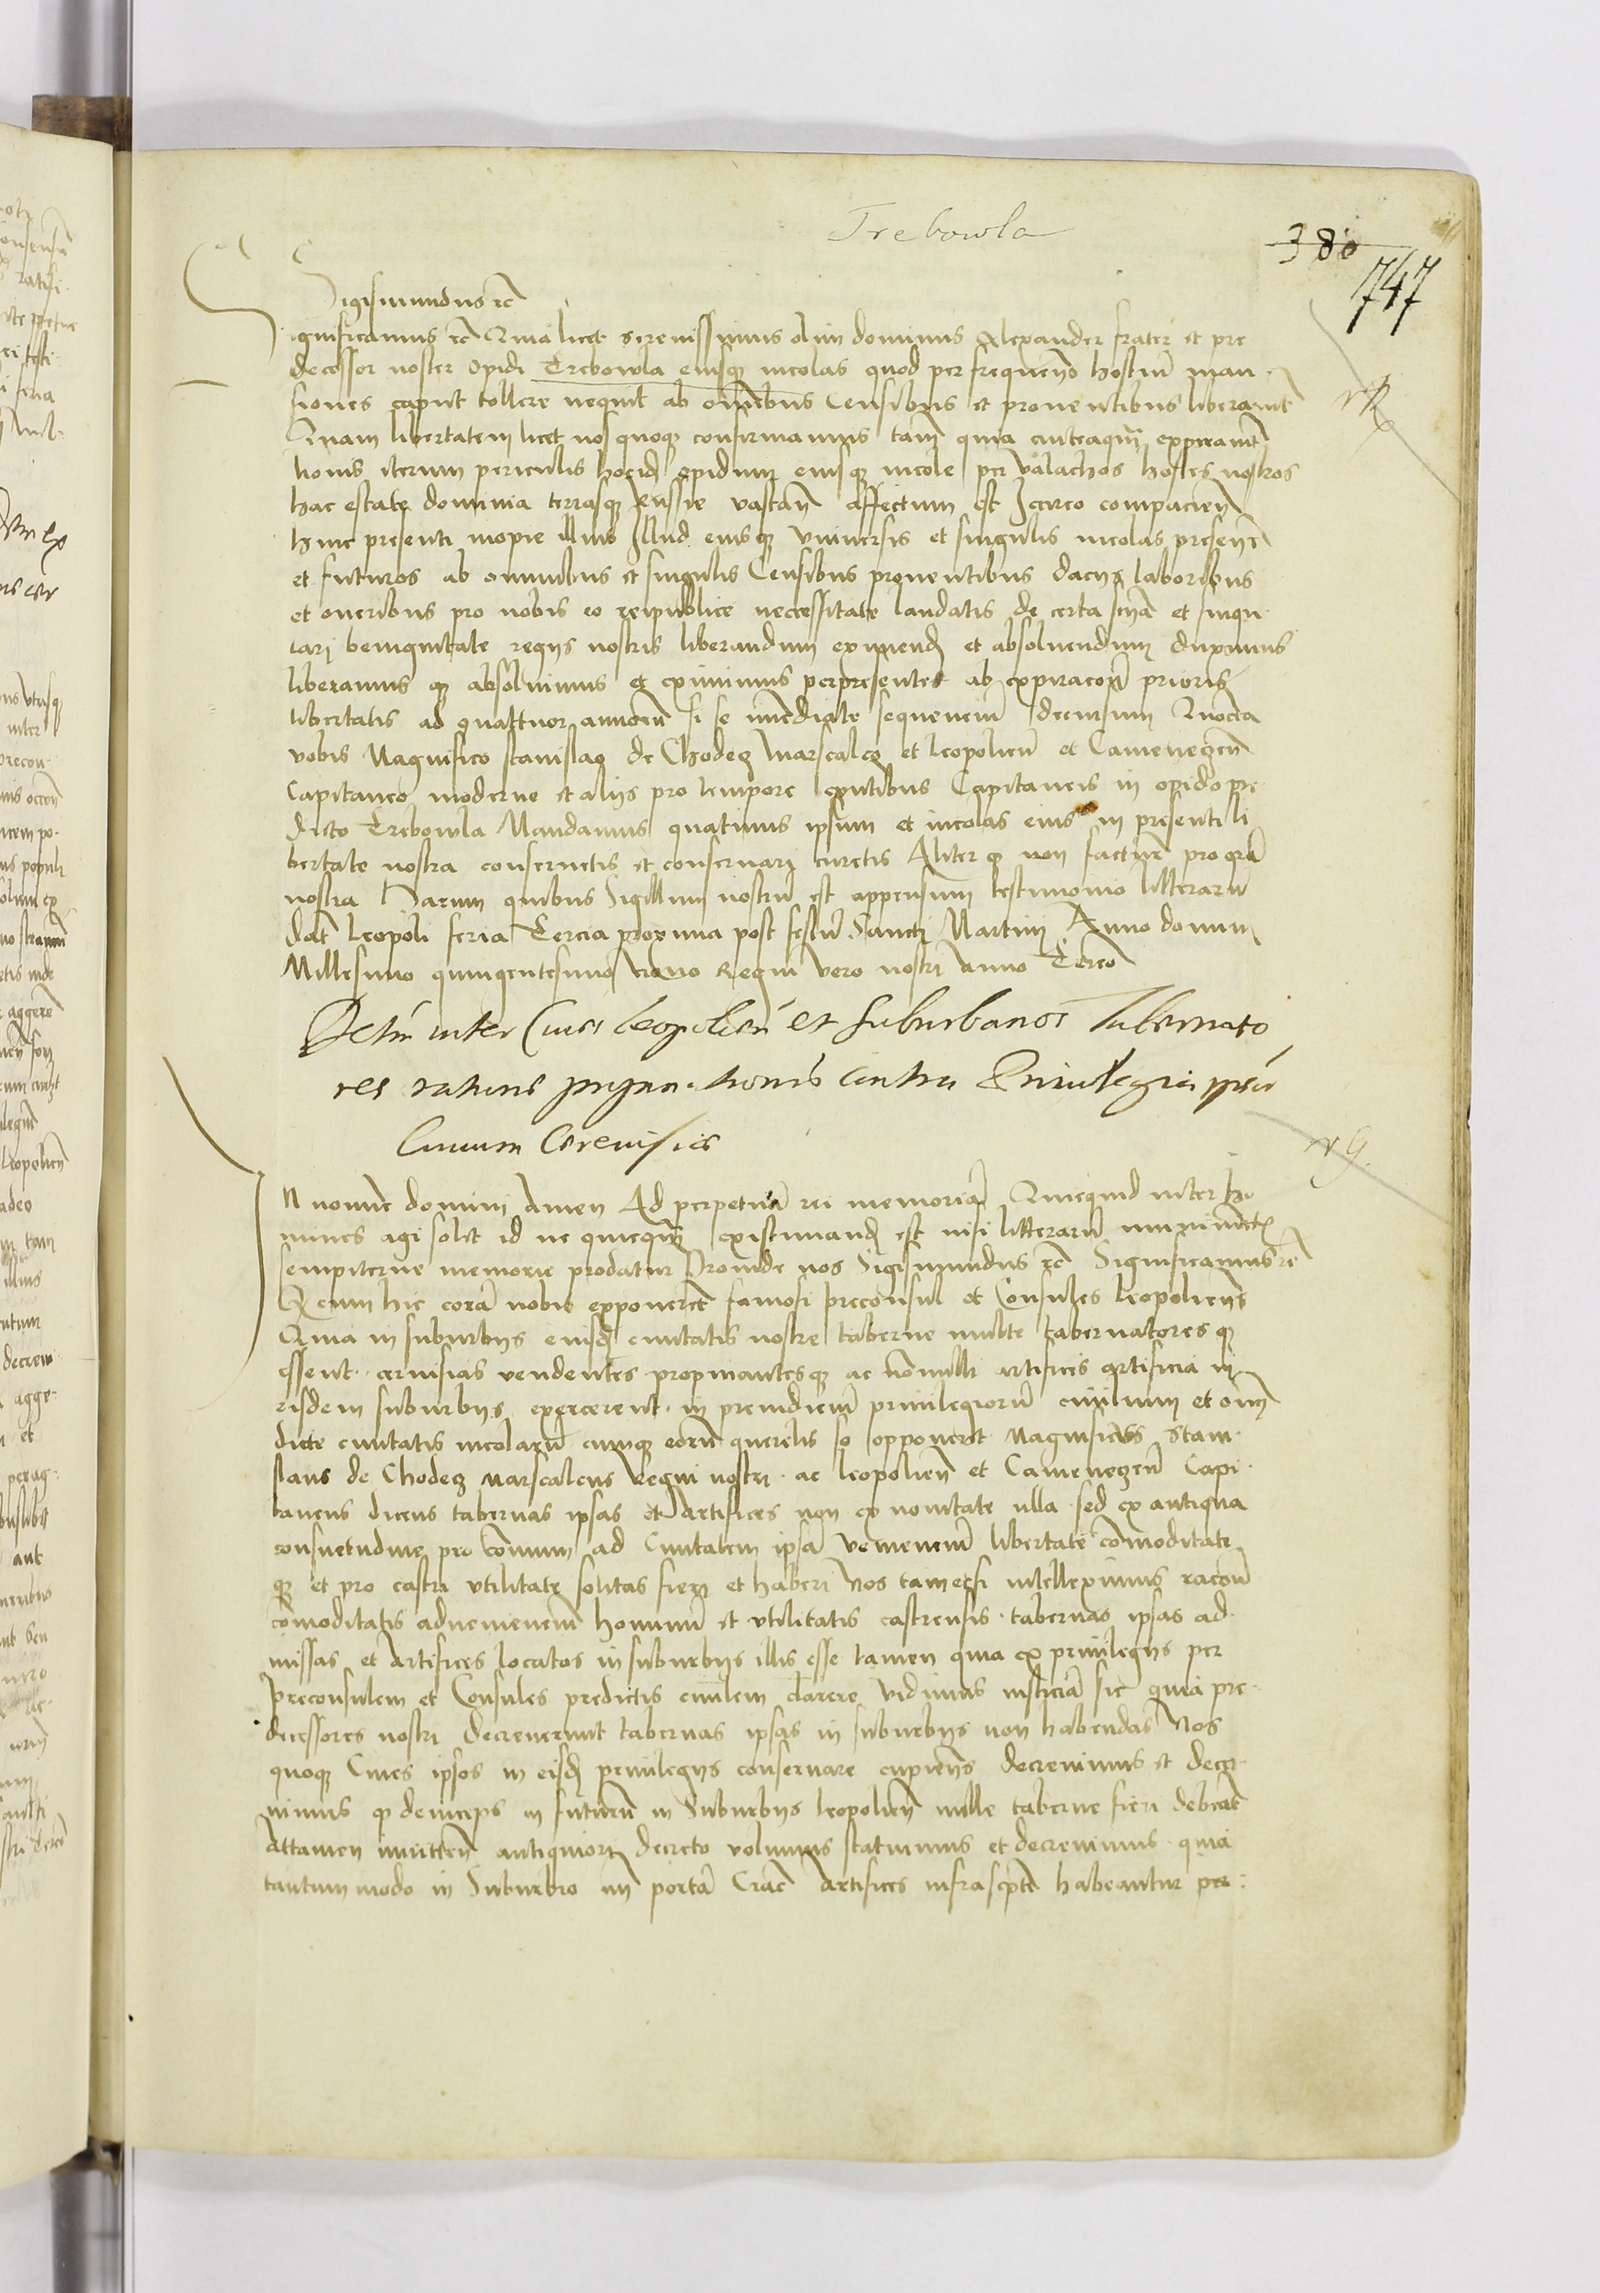 Trebowla
380
747
Sigismundus etc̄
significamus etc̄ Quia licet serenissimus olim dominus Alexander frater et pre
decessor noster opidi Trebowla eiusq incolas quod per frequenṫ hostiū inan
siones caput tollere nequit ab omībus Censibus et proventibus liberavit
Quam libertatem licet nos quoq confirmavimus tam̄ quia anteaqm̄ expiravit
iterum periculis opidum eiusq incole per valachos hostes nostros
hac estate dominia terrasq Russie vastan̄ affectum est Iccirco compacien̄
huic presenti inopie illius Illud eiusq vniversis et singulis incolas presen̄
et futuros ab omnibus et singulis Censibus proventibus dacijs laboribus
et oneribus pro nobis eo reipublice necessitate laudatis de certa scīa et singu
lari benignitate regijs nostris liberandum eximend et absolvendum duximus
liberamus q absolvimus et eximimus per presentes ab expiracoē prioris
libertatis ad quattuor annorū si se imediate sequencium decursum Quocirca
vobis Magnifico Stanislao de Chodecz Marscalco et leopolien̄ et Cameneczen̄
Capitaneo moderno et alijs pro tempore existentibus Capitaneis in opido pre
dicto Trebowla Mandamus quatinus ipsum et incolas eius in presenti li
bertate nostra conservetis et conservari curetis Aliter q non factur̄ pro gr̄a
nostra Harum quibus Sigillum nostrū est appensum testimonio litterarū
dat̄ Leopoli feria Tercia proxima post festū Sancti Martini Anno domini
Millesimo quingentesimo nono Regni vero nostri anno Tercō
Decr̄m inter Cives leopolien̄ et suburbanos Tabernato
res rationis propinationis contra Privilegia ipsor̄
Civium Cerevisie
IN nomine domini Amen Ad perpetuā rei memoriā Quicquid inter ho
mines agi solet id ne quicqm̄ existimand est nisi litterarū munimētis
sempiterne memorie prodatur Proinde nos Sigismundus etc̄ Significamus etc̄
Q cum hic corā nobis exponeret famosi preconsul et Consules leopoliens
Quia in suburbijs eiusd civitatis nostre taberne multe tabernatores q
essent cervisias vendentes propinantesq ac nōnulli artifices artificia in
eisdem suburbijs exercerent in preiudicium privilegiorū civilium et omn̄
dicte civitatis incolarū cumq eorū querelis se opponeret Magnificus Stani
slaus de Chodecz Marscalcus Regni nostri ac leopolien̄ et Cameneczen̄ Capi
taneus dicens tabernas ipsas et Artifices non ex novitate ulla sed ex antiqua
consuetudine pro cōmuni ad Civitatem ipsā veniencium libertate cōmoditate
q et pro castri vtilitate solitas fieri et haberi Nos tametsi intelleximus racoē
cōmoditatis advenienciū hominū et vtilitatis castrensis tabernas ipsas ad
missas et Artifices locatos in suburbijs illis esse tamen quia ex privilegijs per
Preconsulem et Consules predictis civilem clarere vidimus iusticiā sic quia pre
decessores nostri decreverunt tabernas ipsas in suburbijs non habendas Nos
quoq Cives ipsos in eisd privilegijs conservare cupiens decrevimus et decer
nimus q deinceps in futurū in Suburbijs leopolien̄ nulle taberne fieri debeat
Attamen innitten̄ antiquiori decreto volumus statuimus et decrevimus quia
tantummodo in Suburbio an̄ portā Crac̄ Artifices infrascr̄pte habeantur per